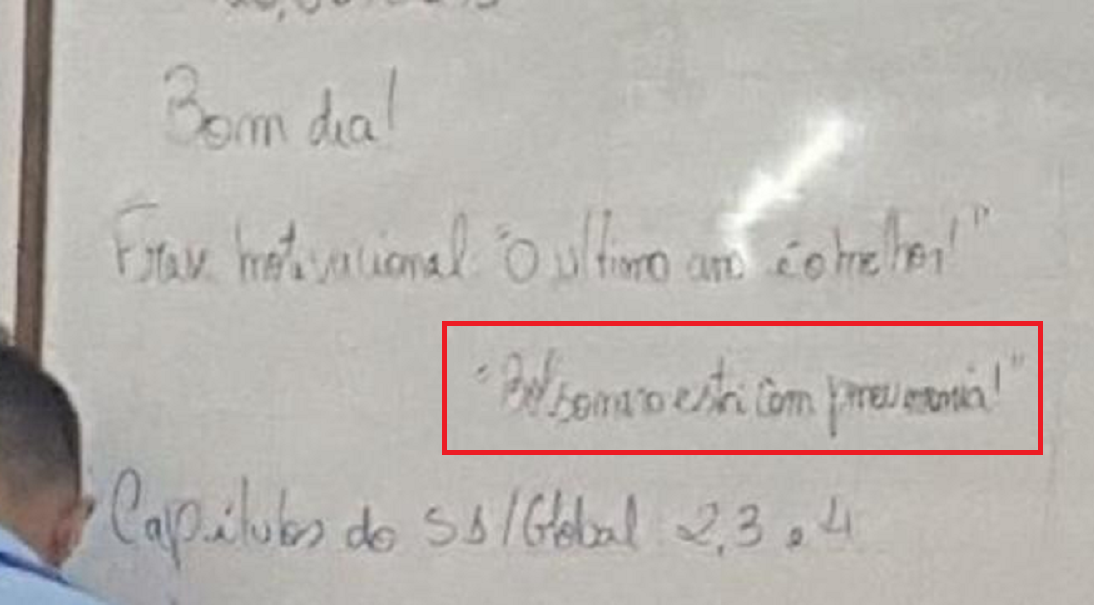 Bom dia!
Frase motivacional "O ultimo ano é o melhor!"
"Bolsonaro está com pneumonia!"
Capítulos do SS/Global 2,3 e 4